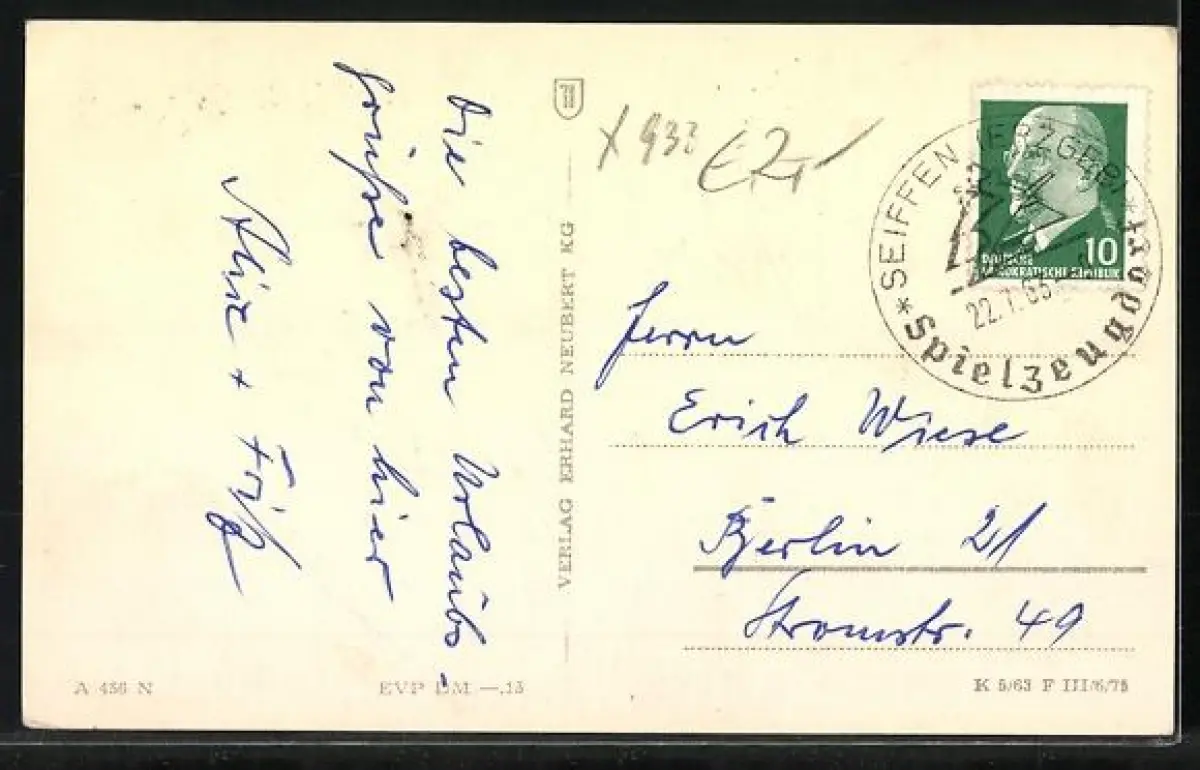 Die besten Urlaubs-
grüße von hier
Alice + Fritz
VERLAG ERHARD NEUBERT KG
X 933 €2,-
10
DEUTSCHE
DEMOKRATISCHE REPUBLIK
* SEIFFEN (ERZGEB) *
22.7.63
Spielzeug
Herrn
Erich Wiese
Berlin 21
Stromstr. 49
A 436 N
EVP DM —.15
K 5/63 F III/6/75